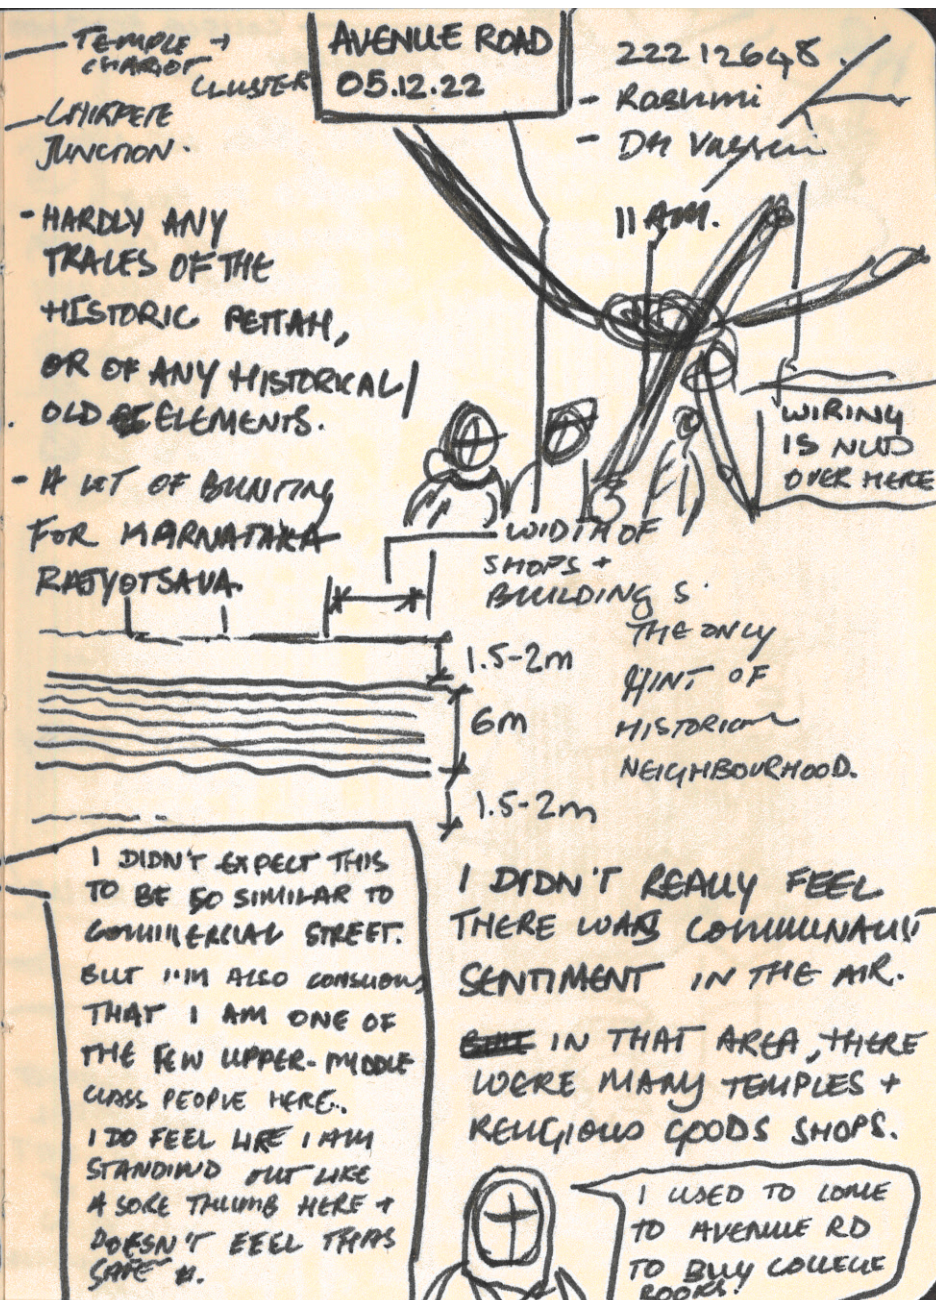 TEMPLE +
CHARIOT
CLUSTER
JUNCTION.
AVENUE ROAD
05.12.22
22212648.
- Rashmi
- DH
11 AM.
- HARDLY ANY
TRACES OF THE
HISTORIC PETTAH,
OR OF ANY HISTORICAL/
OLD ELEMENTS.
- A LOT OF BUNTING
FOR KARNATAKA
RAJYOTSAVA.
WIRING
IS
OVER HERE
WIDTH OF
SHOPS +
BUILDING S.
THE ONLY
HINT OF
HISTORICAL
NEIGHBOURHOOD.
1.5-2m
6m
1.5-2m
I DIDN'T EXPECT THIS
TO BE SO SIMILAR TO
COMMERCIAL STREET.
BUT I'M ALSO CONSCIOUS
THAT I AM ONE OF
THE FEW UPPER-MIDDLE
CLASS PEOPLE HERE..
I DO FEEL LIKE I AM
STANDIND OUT LIKE
A SORE THUMB HERE +
DOESN'T EEEL THAS
SAFE
I DIDN'T REALLY FEEL
THERE WAS COMMUNALIST
SENTIMENT IN THE AIR.
IN THAT AREA, THERE
WERE MANY TEMPLES +
RELIGIOUS GOODS SHOPS.
I USED TO COME
TO AVENUE RD
TO BUY COLLEGE
BOOKS!